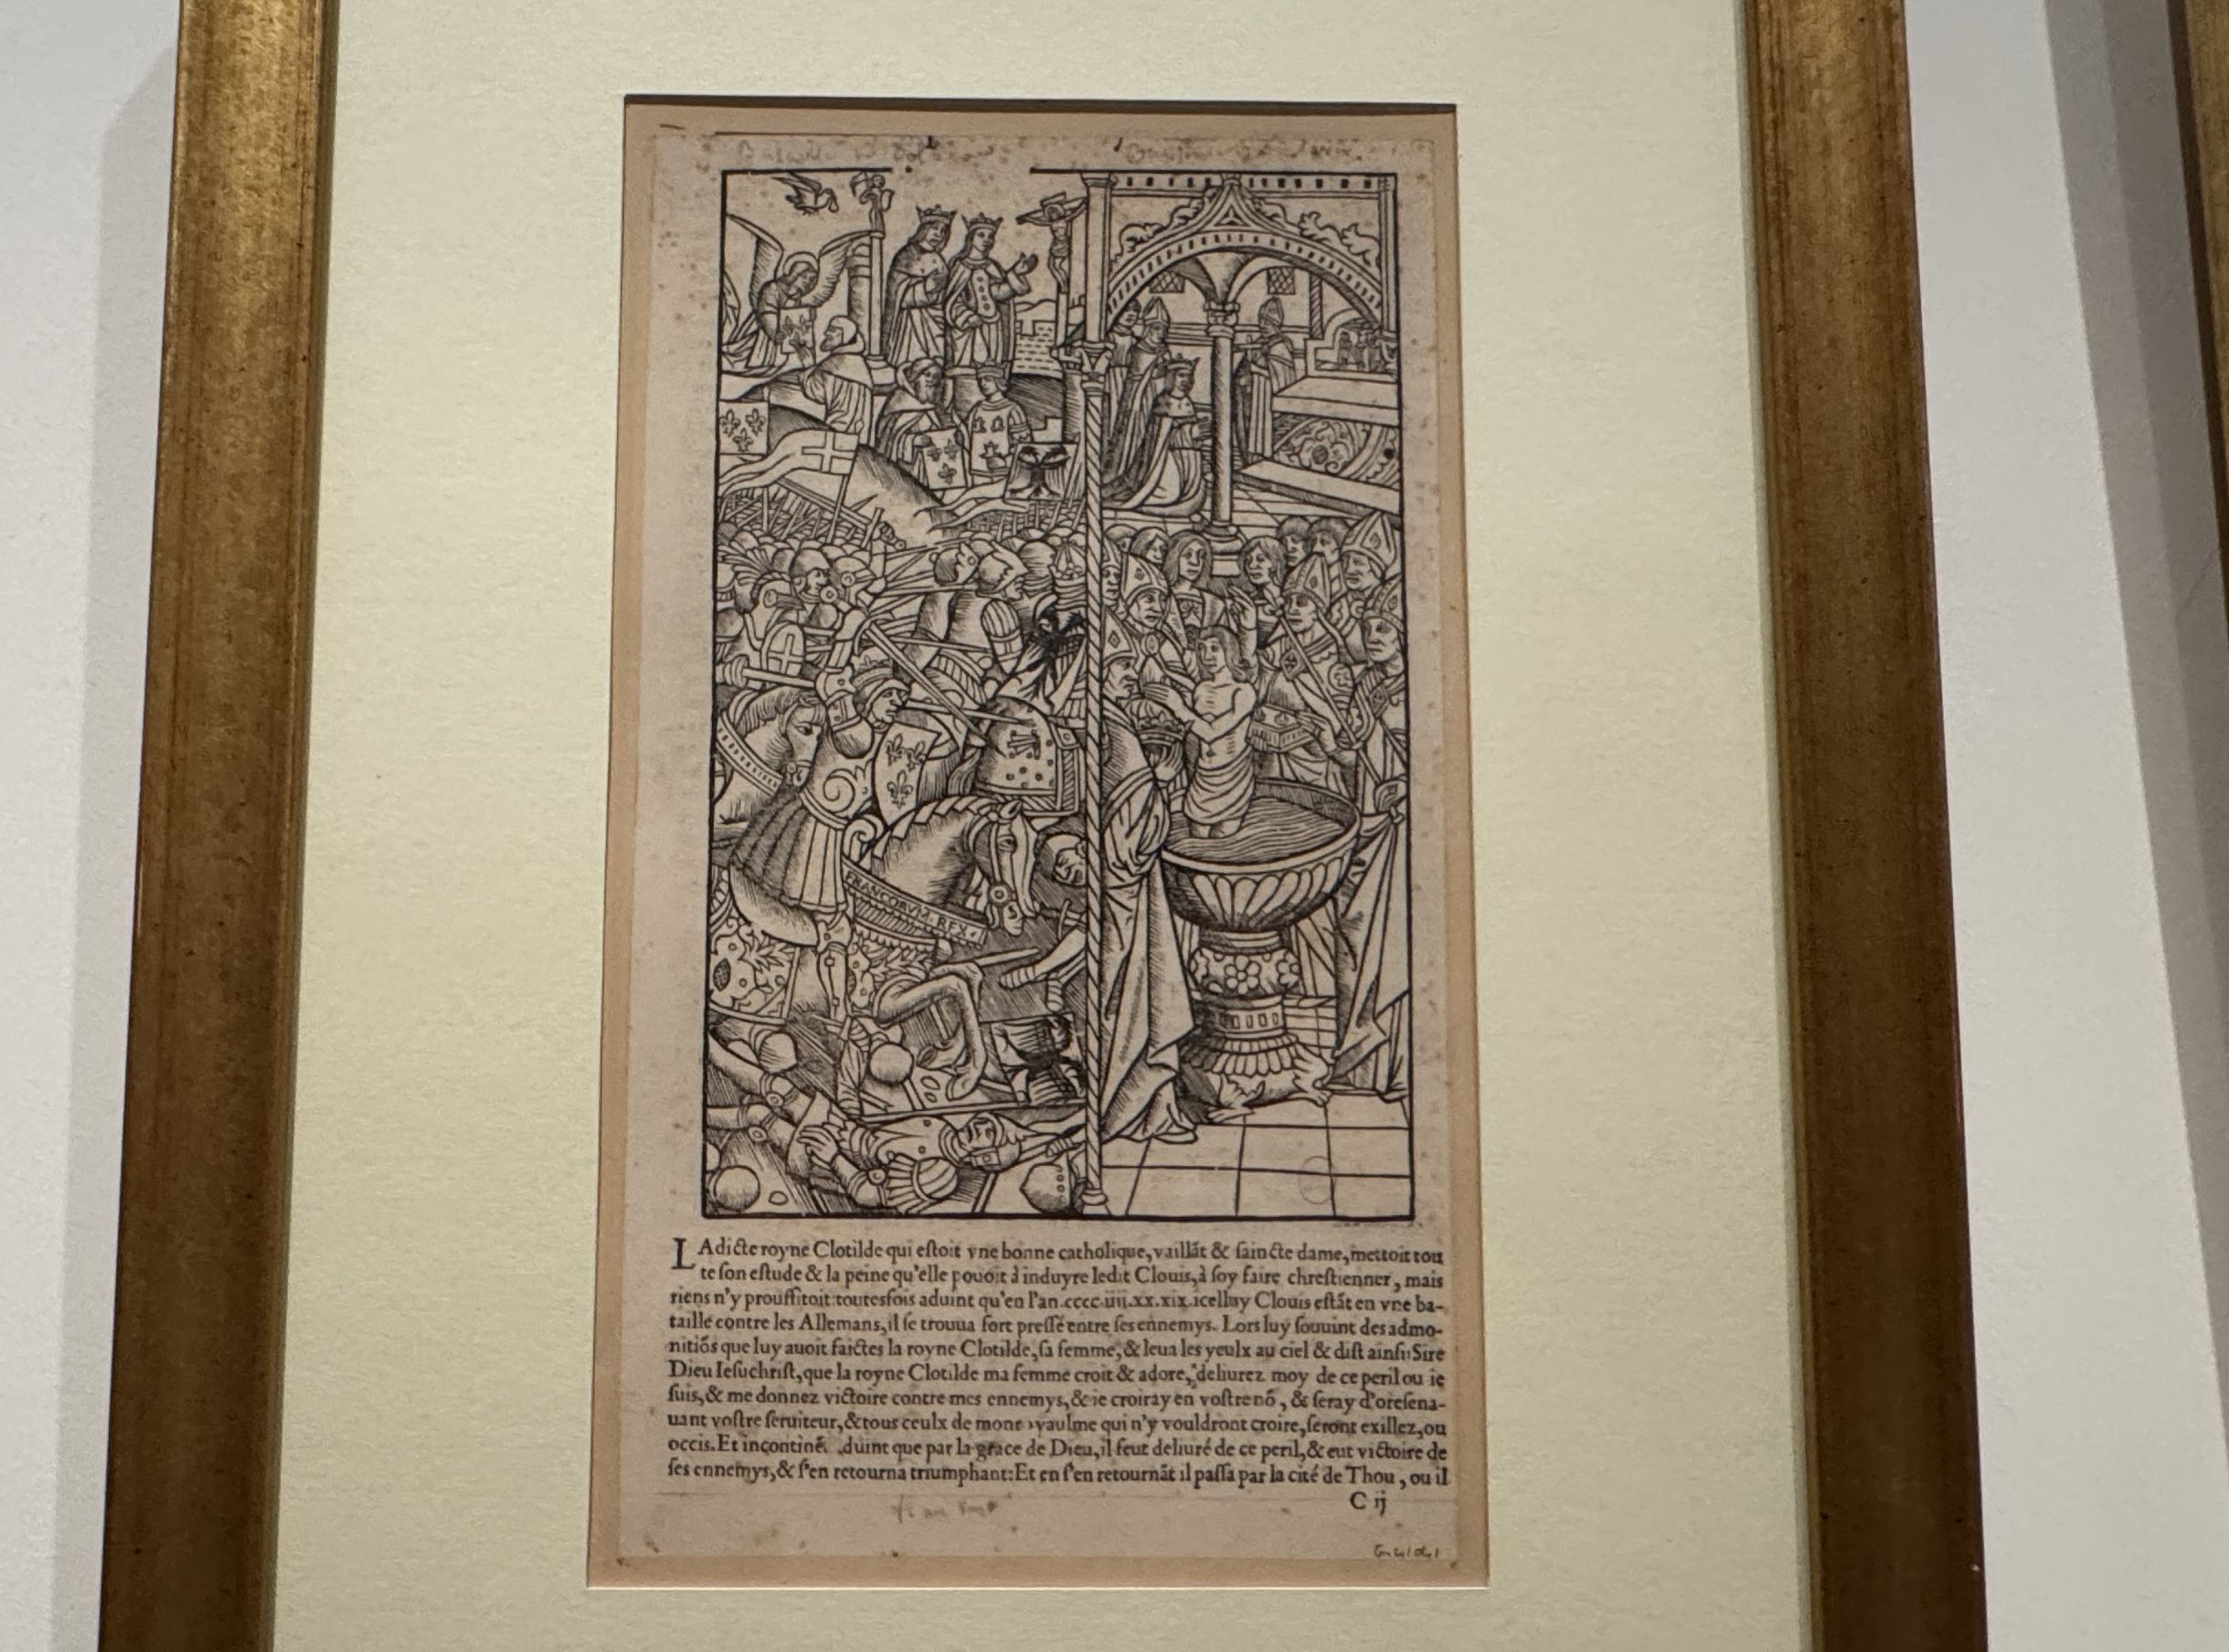 FRANCORVM REX
LAdicte royne Clotilde qui eſtoit vne bonne catholique, vaillãt & ſaincte dame, mettoit tou
te ſon eſtude & la peine qu'elle pouoit à induyre ledit Clouis, à ſoy faire chreſtienner, mais
riens n'y prouffitoit: toutesfois aduint qu'en l'an .cccc.iiij.xx.xix. icelluy Clouis eſtãt en vne ba-
taille contre les Allemans, il ſe trouua fort preſſé entre ſes ennemys. Lors luy ſouuint des admo-
nitiõs que luy auoit faictes la royne Clotilde, ſa femme, & leua les yeulx au ciel & diſt ainſi: Sire
Dieu Ieſuchriſt, que la royne Clotilde ma femme croit & adore, deliurez moy de ce peril ou ie
ſuis, & me donnez victoire contre mes ennemys, & ie croiray en voſtre nõ, & ſeray d'oreſena-
uant voſtre ſeruiteur, & tous ceulx de mon royaulme qui n'y vouldront croire, ſeront exillez, ou
occis. Et incontinẽ. aduint que par la grace de Dieu, il feut deliuré de ce peril, & eut victoire de
ſes ennemys, & ſ'en retourna triumphant: Et en ſ'en retournãt il paſſa par la cité de Thou, ou il
C ij